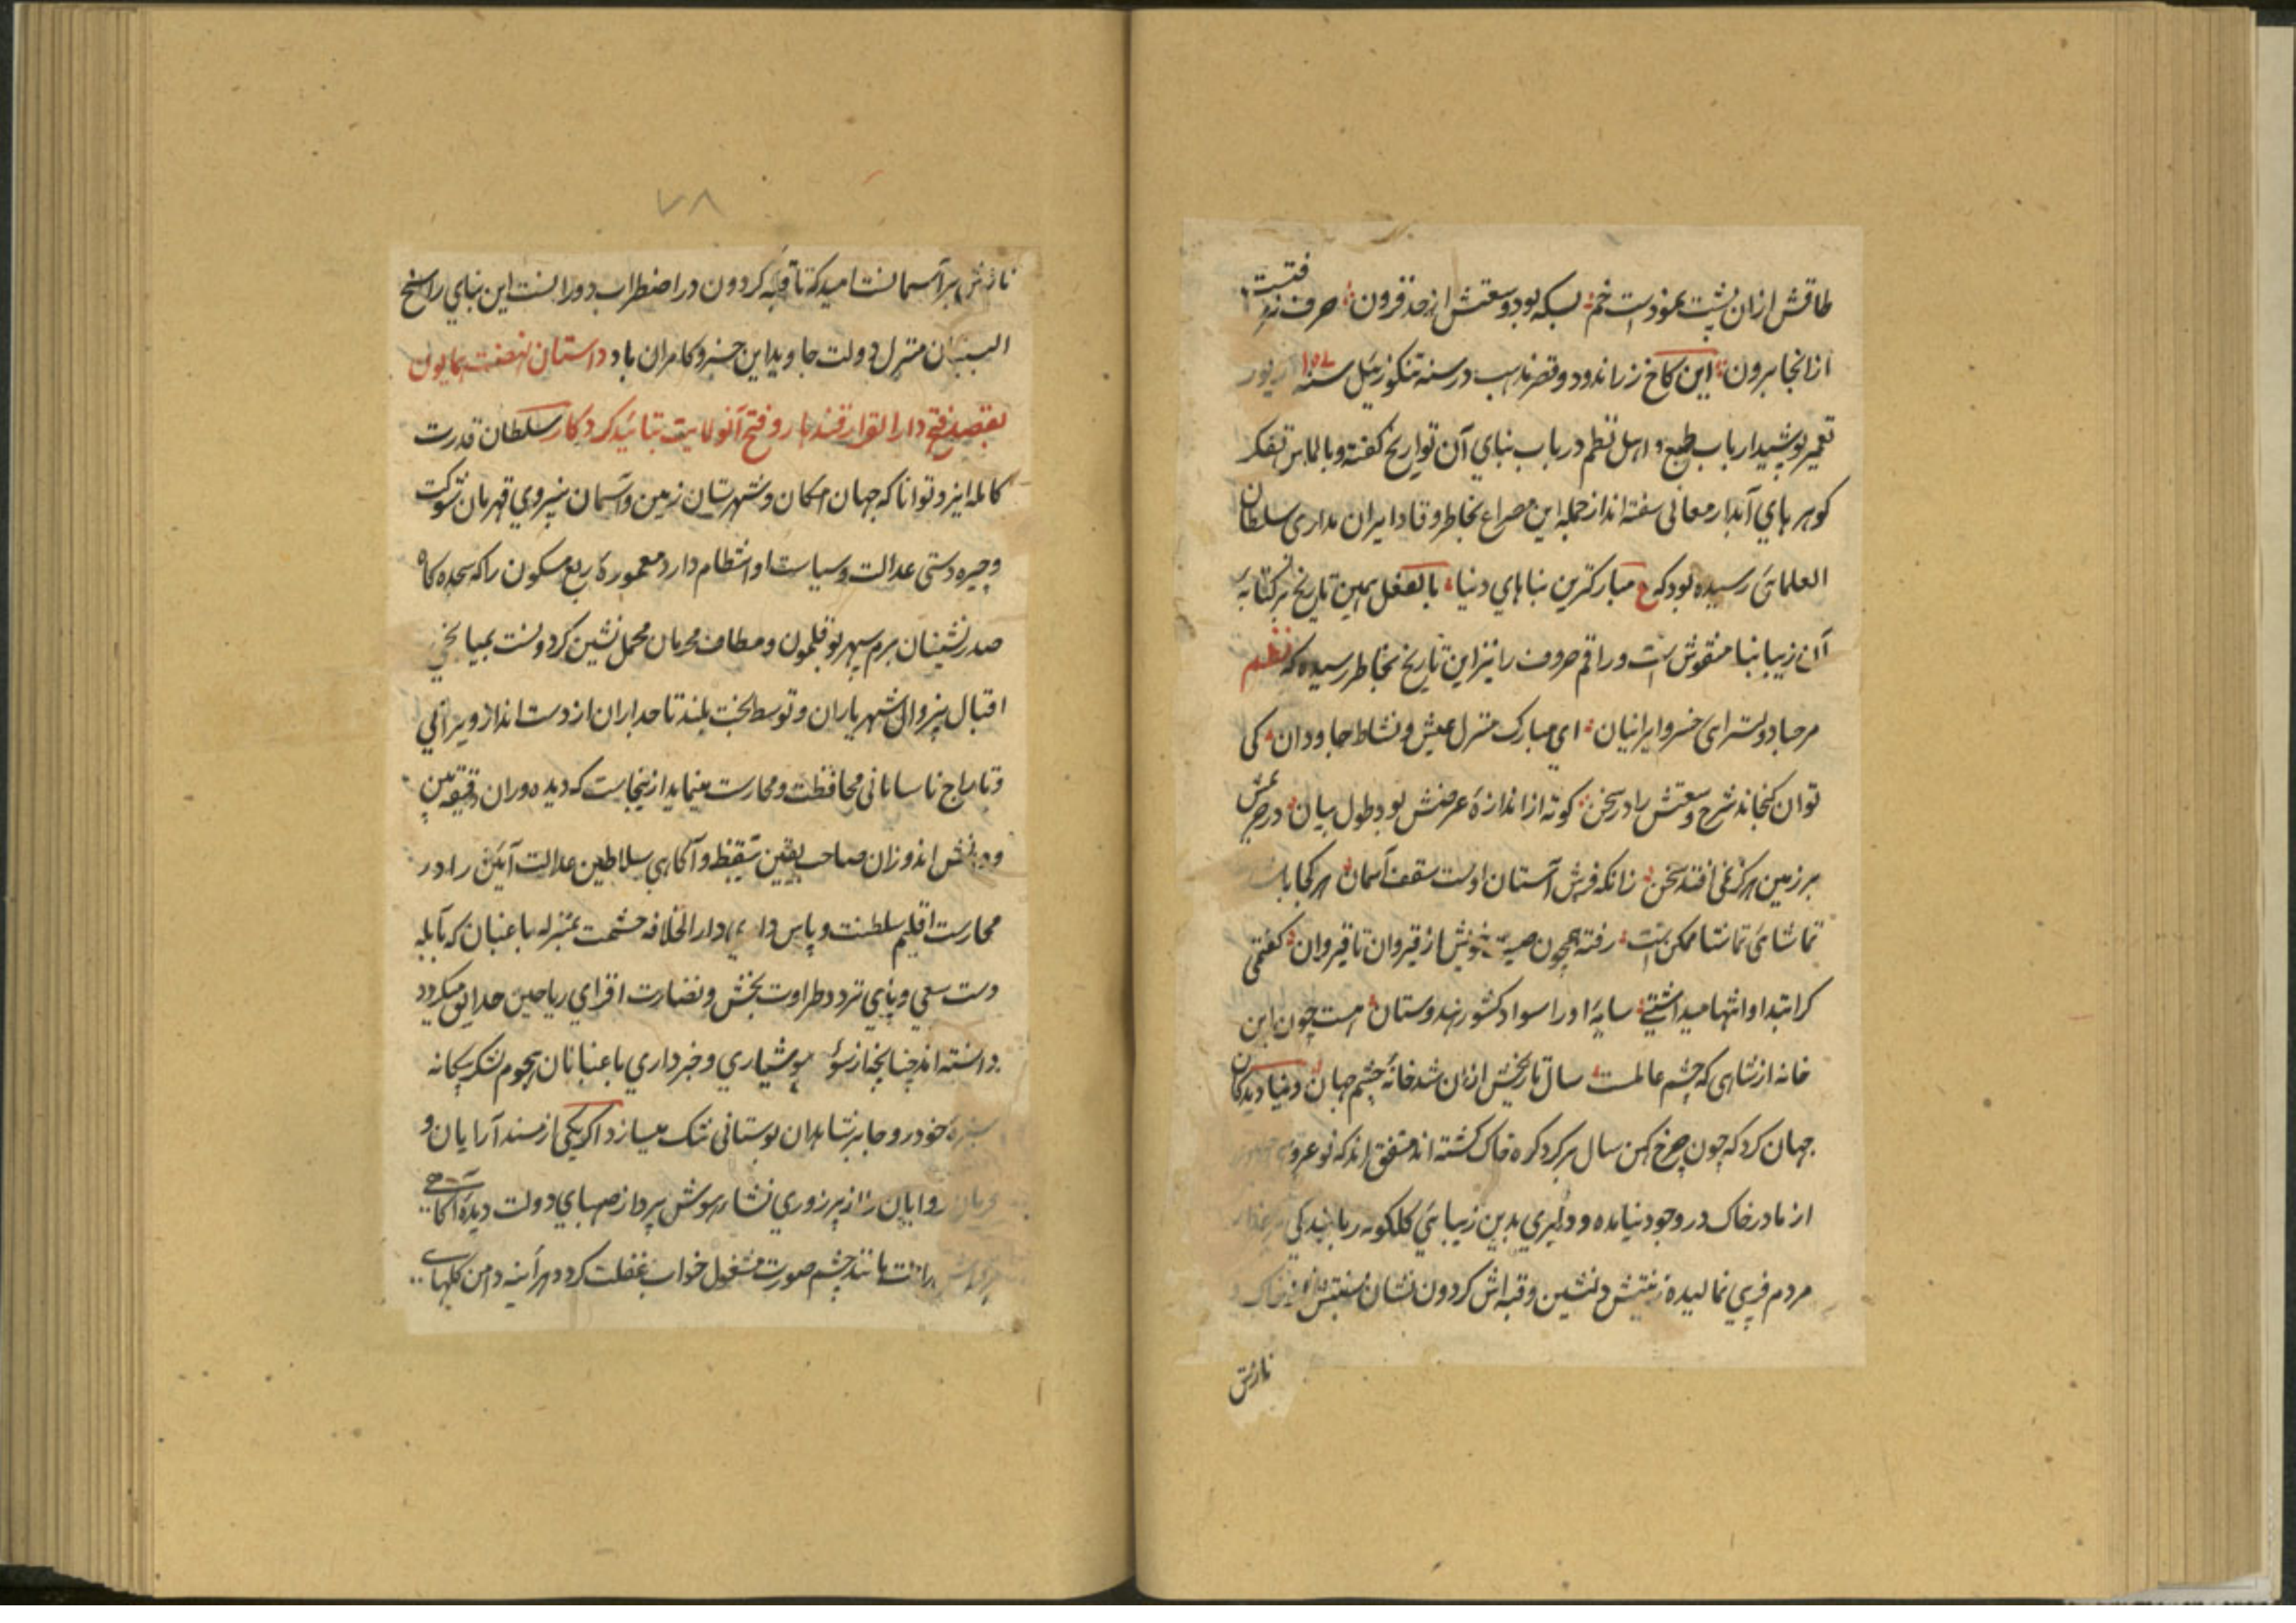 طاقش ازان پشت نموداست خم بسکه بود وسعتش از حد فزون حرف زند
فتست
از انجا برون این کاخ زراندود و قصر مذهب در سنه تنکوزئیل سنه ١٠٥٧ زیور
تعمیر پوشید ارباب طبع و اهل نظم در باب بنای آن تواریخ کفته و بالماس تفکر
کوهرهای آبدار معانی سفته اند از جمله این مصراع بخاطر وقاد ایران مداری سلطان
العلمائی رسیده بود که ع مبارکترین بناهای دنیا بالفعل همین تاریخ بر کتابه
آن زیبا بنا منقوش است و راقم حروف را نیز این تاریخ بخاطر رسیده که نظم
مرحبا دولتسرای خسرو ایرانیان ای مبارک منزل عیش و نشاط جاودان کی
توان کنجاند شرح وسعتش را در سخن کوته از اندازهٔ عرضش بود طول بیان در
بر زمین هرکز نمی افتد سخن زانکه فرش آستان اوست سقف آسمان هر کجا
تماشائی تماشا ممکن است رفته همچون صیت خویش از قیروان تا قیروان کفتمی
کر ابتدا و انتها میداشتی سایهٔ او را سواد کشور هندوستان هست چون این
خانه از شاهی که چشم عالمست سال تاریخش ازان شد خانهٔ چشم جهان دنیا دیدکان
جهان کرد که چون چرخ کهن سال بر کرد کره خاک کشته اند متفق اند که نوعروسی
از مادر خاک در وجود نیامده و دلبری بدین زیبائی کلکونه ربایندکی
مردم فریبی نمالیده زینتش دلنشین و قبه اش کردون نشان
نازش
نازش بر آسمانست امید که تا قبه کردون در اضطراب دورانست این بنای راسخ
البنیان منزل دولت جاوید این خسرو کامران باد داستان نهضت همایون
بقصد فتح دار القرار قندهار و فتح آنولایت بتائید کردکار سلطان قدرت
کامله ایزد توانا که جهان امکان و شهرستان زمین و آسمان بنیروی قهرمان شوکت
و چیره دستی عدالت و سیاست او انتظام دارد معمورهٔ ربع مسکون را که سجده کاه
صدرنشینان بزم سپهر بوقلمون و مطاف محرمان محمل نشین کردونست بمیانجی
اقبال بیزوال شهریاران و توسط بخت بلند تاجداران از دست انداز ویرانی
و تاراج ناسامانی محافظت و محارست مینماید ازینجاست که دیده وران دقیقه بین
و دانش اندوزان صاحب یقین تیقظ و آکاهی سلاطین عدالت آئین را در
محارست اقلیم سلطنت و پاس داری دار الخلافه حشمت بمنزله باغبان که بآبله
دست سعی و پای تردد طراوت بخش و نضارت افزای ریاحین حدایق میکردد
دانسته اند چنانچه از هوشیاری و خبرداری باغبانان هجوم لشکر بیکانه
سبزهٔ خودرو جا بر شاهدان بوستانی تنک میسازد اکر یکی از مسند آرایان و
فرمان روایان را از پرزوری نشاء هوش پرداز صهبای دولت دیدهٔ آکاهی
مانند چشم صورت مشغول خواب غفلت کردد هر آینه دامن کلهای
٧٨